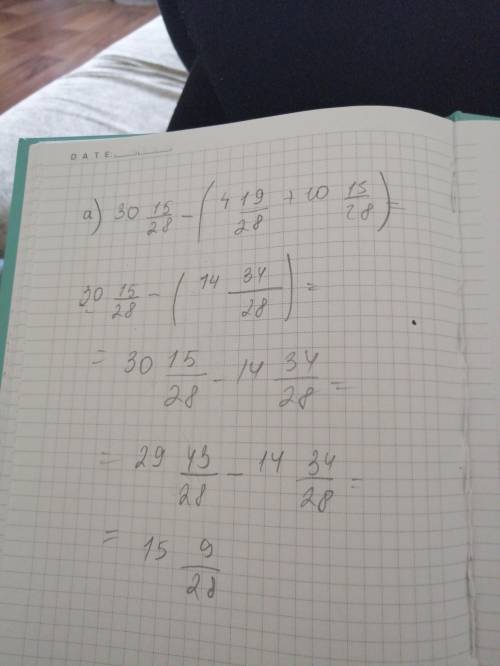 DATE:
а) 30 15/28 - (4 19/28 + 10 15/28) =
30 15/28 - (14 34/28) =
= 30 15/28 - 14 34/28 =
= 29 43/28 - 14 34/28 =
= 15 9/28